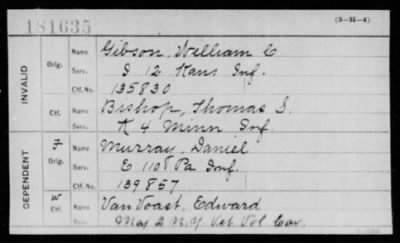 181635
(3—II—4)
INVALID
Orig.
Name Gibson, William C
Serv. I 12 Kans Inf.
Ctf. No. 135830
Ctf.
Name Bishop, Thomas S.
Serv. K 4 Minn Inf.
DEPENDENT
F
Orig.
Name Murray, Daniel
Serv. E 110 Pa Inf.
Ctf. No. 139857
W
Ctf.
Name Van Voast, Edward
Serv. Maj 2 N.Y. Vet Vol Cav.